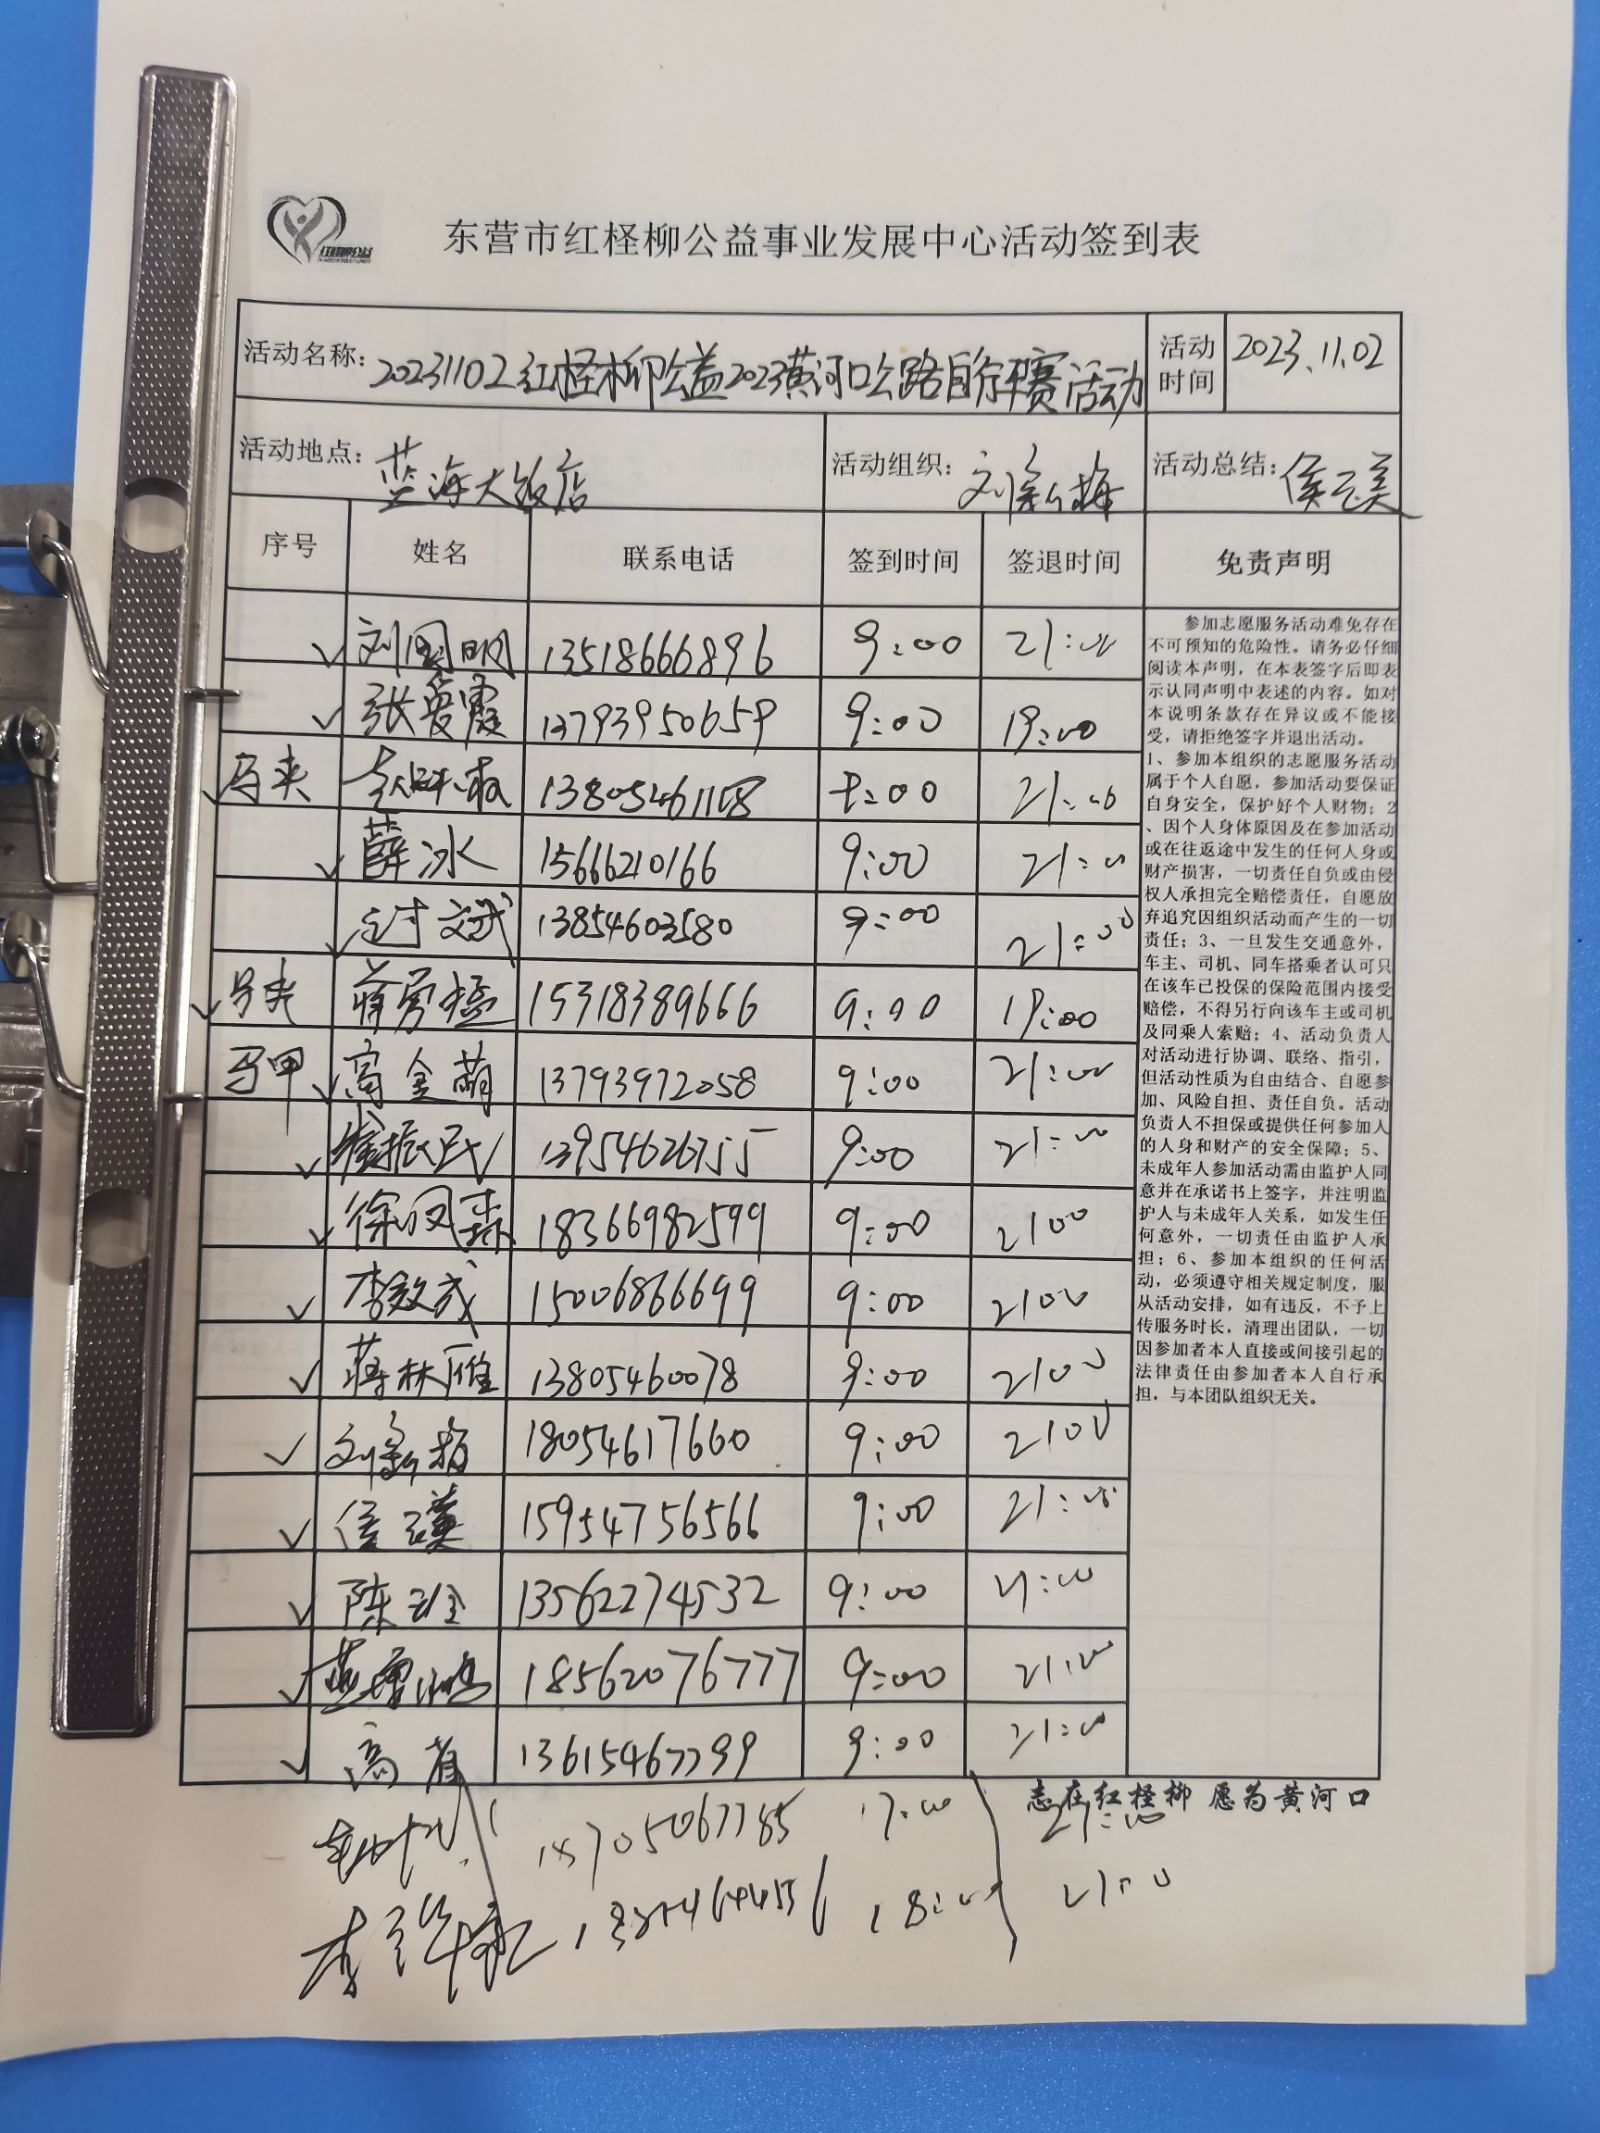 东营市红柽柳公益事业发展中心活动签到表
活动名称：20231102红柽柳公益2023黄河口公路自行车赛活动 活动时间 2023.11.02
活动地点：蓝海大饭店 活动组织：刘新梅 活动总结：侯云美
序号 姓名 联系电话 签到时间 签退时间 免责声明
✓ 刘国明 13518666896 9:00 21:00
✓ 张爱霞 13793950659 9:00 19:00
✓ 马夹 13805461108 21:00
✓ 薛冰 15666210166 9:00 21:00
✓ 文武 13854603580 9:00 21:00
✓ 马夹 蒋 15318389666 9:00 19:00
马甲 ✓ 高金萌 13793972058 9:00 21:00
✓ 崔振民 13954626755 9:00 21:00
✓ 徐凤森 18366982599 9:00 2100
✓ 李效成 15006866699 9:00 2100
✓ 蒋林雁 13805460078 9:00 2100
✓ 刘新梅 18054617660 9:00 2100
✓ 侯云美 15954756566 9:00 21:00
✓ 陈 13562274532 9:00 21:00
✓ 燕增 18562076777 9:00 21:00
✓ 高 9:00 21:00
参加志愿服务活动难免存在
不可预知的危险性。请务必仔细
阅读本声明，在本表签字后即表
示认同声明中表述的内容。如对
本说明条款存在异议或不能接
受，请拒绝签字并退出活动。
1、参加本组织的志愿服务活动
属于个人自愿，参加活动要保证
自身安全，保护好个人财物；2
、因个人身体原因及在参加活动
或在往返途中发生的任何人身或
财产损害，一切责任自负或由侵
权人承担完全赔偿责任，自愿放
弃追究因组织活动而产生的一切
责任；3、一旦发生交通意外，
车主、司机、同车搭乘者认可只
在该车已投保的保险范围内接受
赔偿，不得另行向该车主或司机
及同乘人索赔；4、活动负责人
对活动进行协调、联络、指引，
但活动性质为自由结合、自愿参
加、风险自担、责任自负。活动
负责人不担保或提供任何参加人
的人身和财产的安全保障；5、
未成年人参加活动需由监护人同
意并在承诺书上签字，并注明监
护人与未成年人关系，如发生任
何意外，一切责任由监护人承
担；6、参加本组织的任何活
动，必须遵守相关规定制度，服
从活动安排，如有违反，不予上
传服务时长，清理出团队，一切
因参加者本人直接或间接引起的
法律责任由参加者本人自行承
担，与本团队组织无关。
志在红柽柳 愿为黄河口
17:00 21:00
李 18:00 21:00